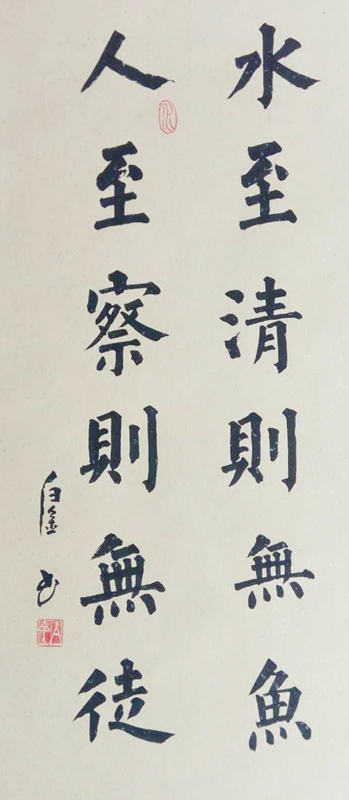 水至清則無魚
人至察則無徒